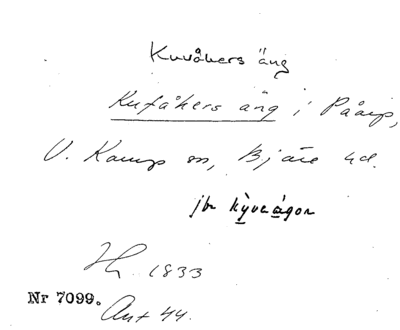 Kuvåkers äng
Kufåkers äng i Påarp,
V. Karup sn, Bjäre hd.
jbr kỳvaågor
Hh. 1833
Nr 7099.
Ant 44.